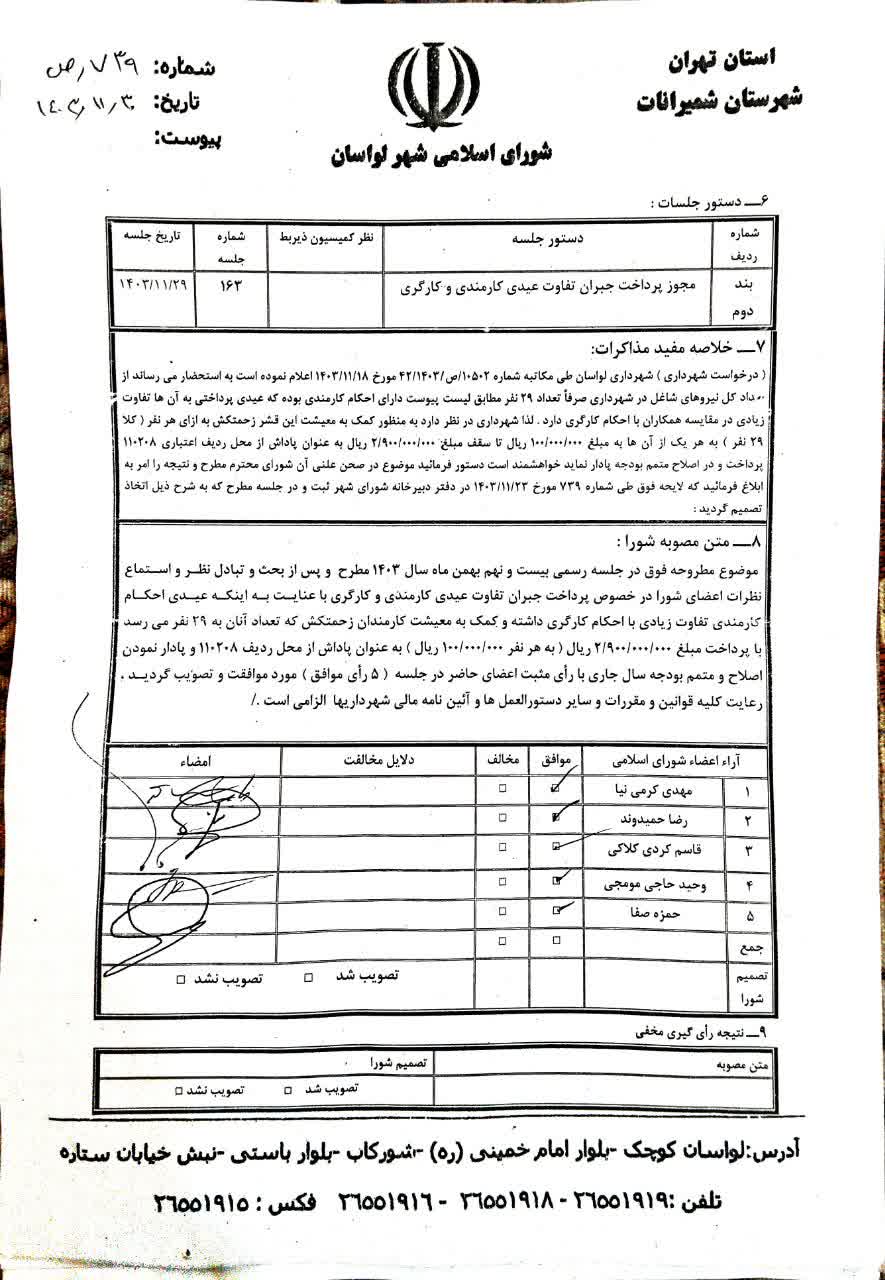 استان تهران
شهرستان شمیرانات
شورای اسلامی شهر لواسان
شماره: ۷۳۹/ص
تاریخ: ۱۴۰۳/۱۱/۳۰
پیوست:
۶ــ دستور جلسات :
شماره ردیف | دستور جلسه | نظر کمیسیون ذیربط | شماره جلسه | تاریخ جلسه
بند دوم | مجوز پرداخت جبران تفاوت عیدی کارمندی و کارگری | ۱۶۳ | ۱۴۰۳/۱۱/۲۹
۷ــ خلاصه مفید مذاکرات:
( درخواست شهرداری ) شهرداری لواسان طی مکاتبه شماره ۱۰۵۰۲/ص/۴۲/۱۴۰۳ مورخ ۱۴۰۳/۱۱/۱۸ اعلام نموده است به استحضار می رساند از
تعداد کل نیروهای شاغل در شهرداری صرفاً تعداد ۲۹ نفر مطابق لیست پیوست دارای احکام کارمندی بوده که عیدی پرداختی به آن ها تفاوت
زیادی در مقایسه همکاران با احکام کارگری دارد . لذا شهرداری در نظر دارد به منظور کمک به معیشت این قشر زحمتکش به ازای هر نفر ( کلا
۲۹ نفر ) به هر یک از آن ها به مبلغ ۱۰۰/۰۰۰/۰۰۰ ریال تا سقف مبلغ ۲/۹۰۰/۰۰۰/۰۰۰ ریال به عنوان پاداش از محل ردیف اعتباری ۱۱۰۲۰۸
پرداخت و در اصلاح متمم بودجه پادار نماید خواهشمند است دستور فرمائید موضوع در صحن علنی آن شورای محترم مطرح و نتیجه را امر به
ابلاغ فرمائید که لایحه فوق طی شماره ۷۳۹ مورخ ۱۴۰۳/۱۱/۲۳ در دفتر دبیرخانه شورای شهر ثبت و در جلسه مطرح که به شرح ذیل اتخاذ
تصمیم گردید :
۸ــ متن مصوبه شورا :
موضوع مطروحه فوق در جلسه رسمی بیست و نهم بهمن ماه سال ۱۴۰۳ مطرح و پس از بحث و تبادل نظر و استماع
نظرات اعضای شورا در خصوص پرداخت جبران تفاوت عیدی کارمندی و کارگری با عنایت به اینکه عیدی احکام
کارمندی تفاوت زیادی با احکام کارگری داشته و کمک به معیشت کارمندان زحمتکش که تعداد آنان به ۲۹ نفر می رسد
با پرداخت مبلغ ۲/۹۰۰/۰۰۰/۰۰۰ ریال ( به هر نفر ۱۰۰/۰۰۰/۰۰۰ ریال ) به عنوان پاداش از محل ردیف ۱۱۰۲۰۸ و پادار نمودن
اصلاح و متمم بودجه سال جاری با رأی مثبت اعضای حاضر در جلسه ( ۵ رأی موافق ) مورد موافقت و تصویب گردید .
رعایت کلیه قوانین و مقررات و سایر دستورالعمل ها و آئین نامه مالی شهرداریها الزامی است ./
آراء اعضاء شورای اسلامی | موافق | مخالف | دلایل مخالفت | امضاء
۱ | مهدی کرمی نیا
۲ | رضا حمیدوند
۳ | قاسم کردی کلاکی
۴ | وحید حاجی مومجی
۵ | حمزه صفا
جمع
تصمیم شورا | تصویب شد □ تصویب نشد □
۹ــ نتیجه رأی گیری مخفی
متن مصوبه | تصمیم شورا
تصویب شد □ تصویب نشد □
آدرس:لواسان کوچک -بلوار امام خمینی (ره) -شورکاب -بلوار باستی -نبش خیابان ستاره
تلفن :۲۶۵۵۱۹۱۹ - ۲۶۵۵۱۹۱۸ - ۲۶۵۵۱۹۱۶ فکس : ۲۶۵۵۱۹۱۵